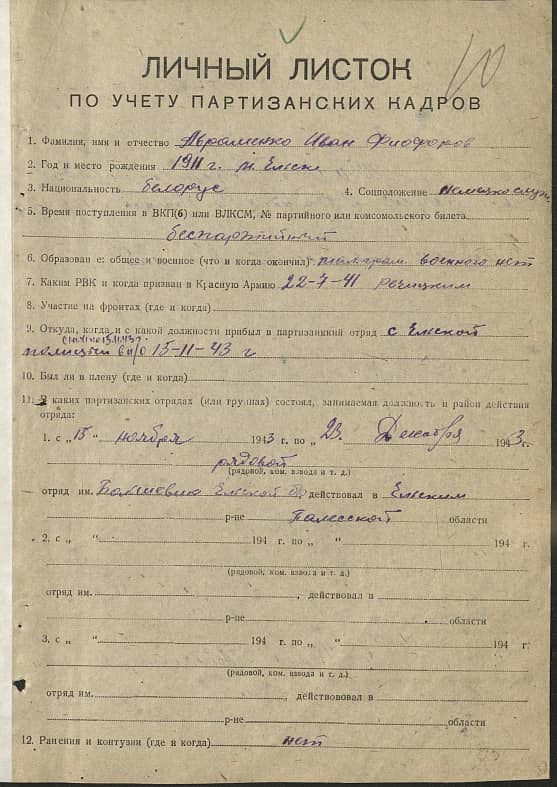 10
ЛИЧНЫЙ ЛИСТОК
ПО УЧЕТУ ПАРТИЗАНСКИХ КАДРОВ
1. Фамилия, имя и отчество Авраменко Иван Фиодоров
2. Год и место рождения 1911 г. м. Ельск
3. Национальность белорус 4. Соцположение
5. Время поступления в ВКП(б) или ВЛКСМ, № партийного или комсомольского билета
беспартийный
6. Образован е: общее и военное (что и когда окончил) военного нет
7. Каким РВК и когда призван в Красную Армию 22-7-41 Речицким
8. Участие на фронтах (где и когда)
9. Откуда, когда и с какой должности прибыл в партизанкий отряд с Ельской
полиции в п/о 15-11-43 г
10. Был ли в плену (где и когда)
11. В каких партизанских отрядах (или группах) состоял, занимаемая должность и район действия
отряда:
1. с „ 15 " ноября 1943 г. по „ 23 " Декабря 1943 г.
рядовой
(рядовой, ком. взвода и т. д.)
отряд им. Большевик Ельской действовал в Ельским
р-не Полесской области
2. с „ " 194 г. по „ " 194 г.
(рядовой, ком. взвода и т. д.)
отряд им. , действовал в
р-не области
3. с „ " 194 г. по „ " 194 г.
(рядовой, ком. взвода и т. д.)
отряд им. , действовал в
р-не области
12. Ранения и контузии (где и когда) нет